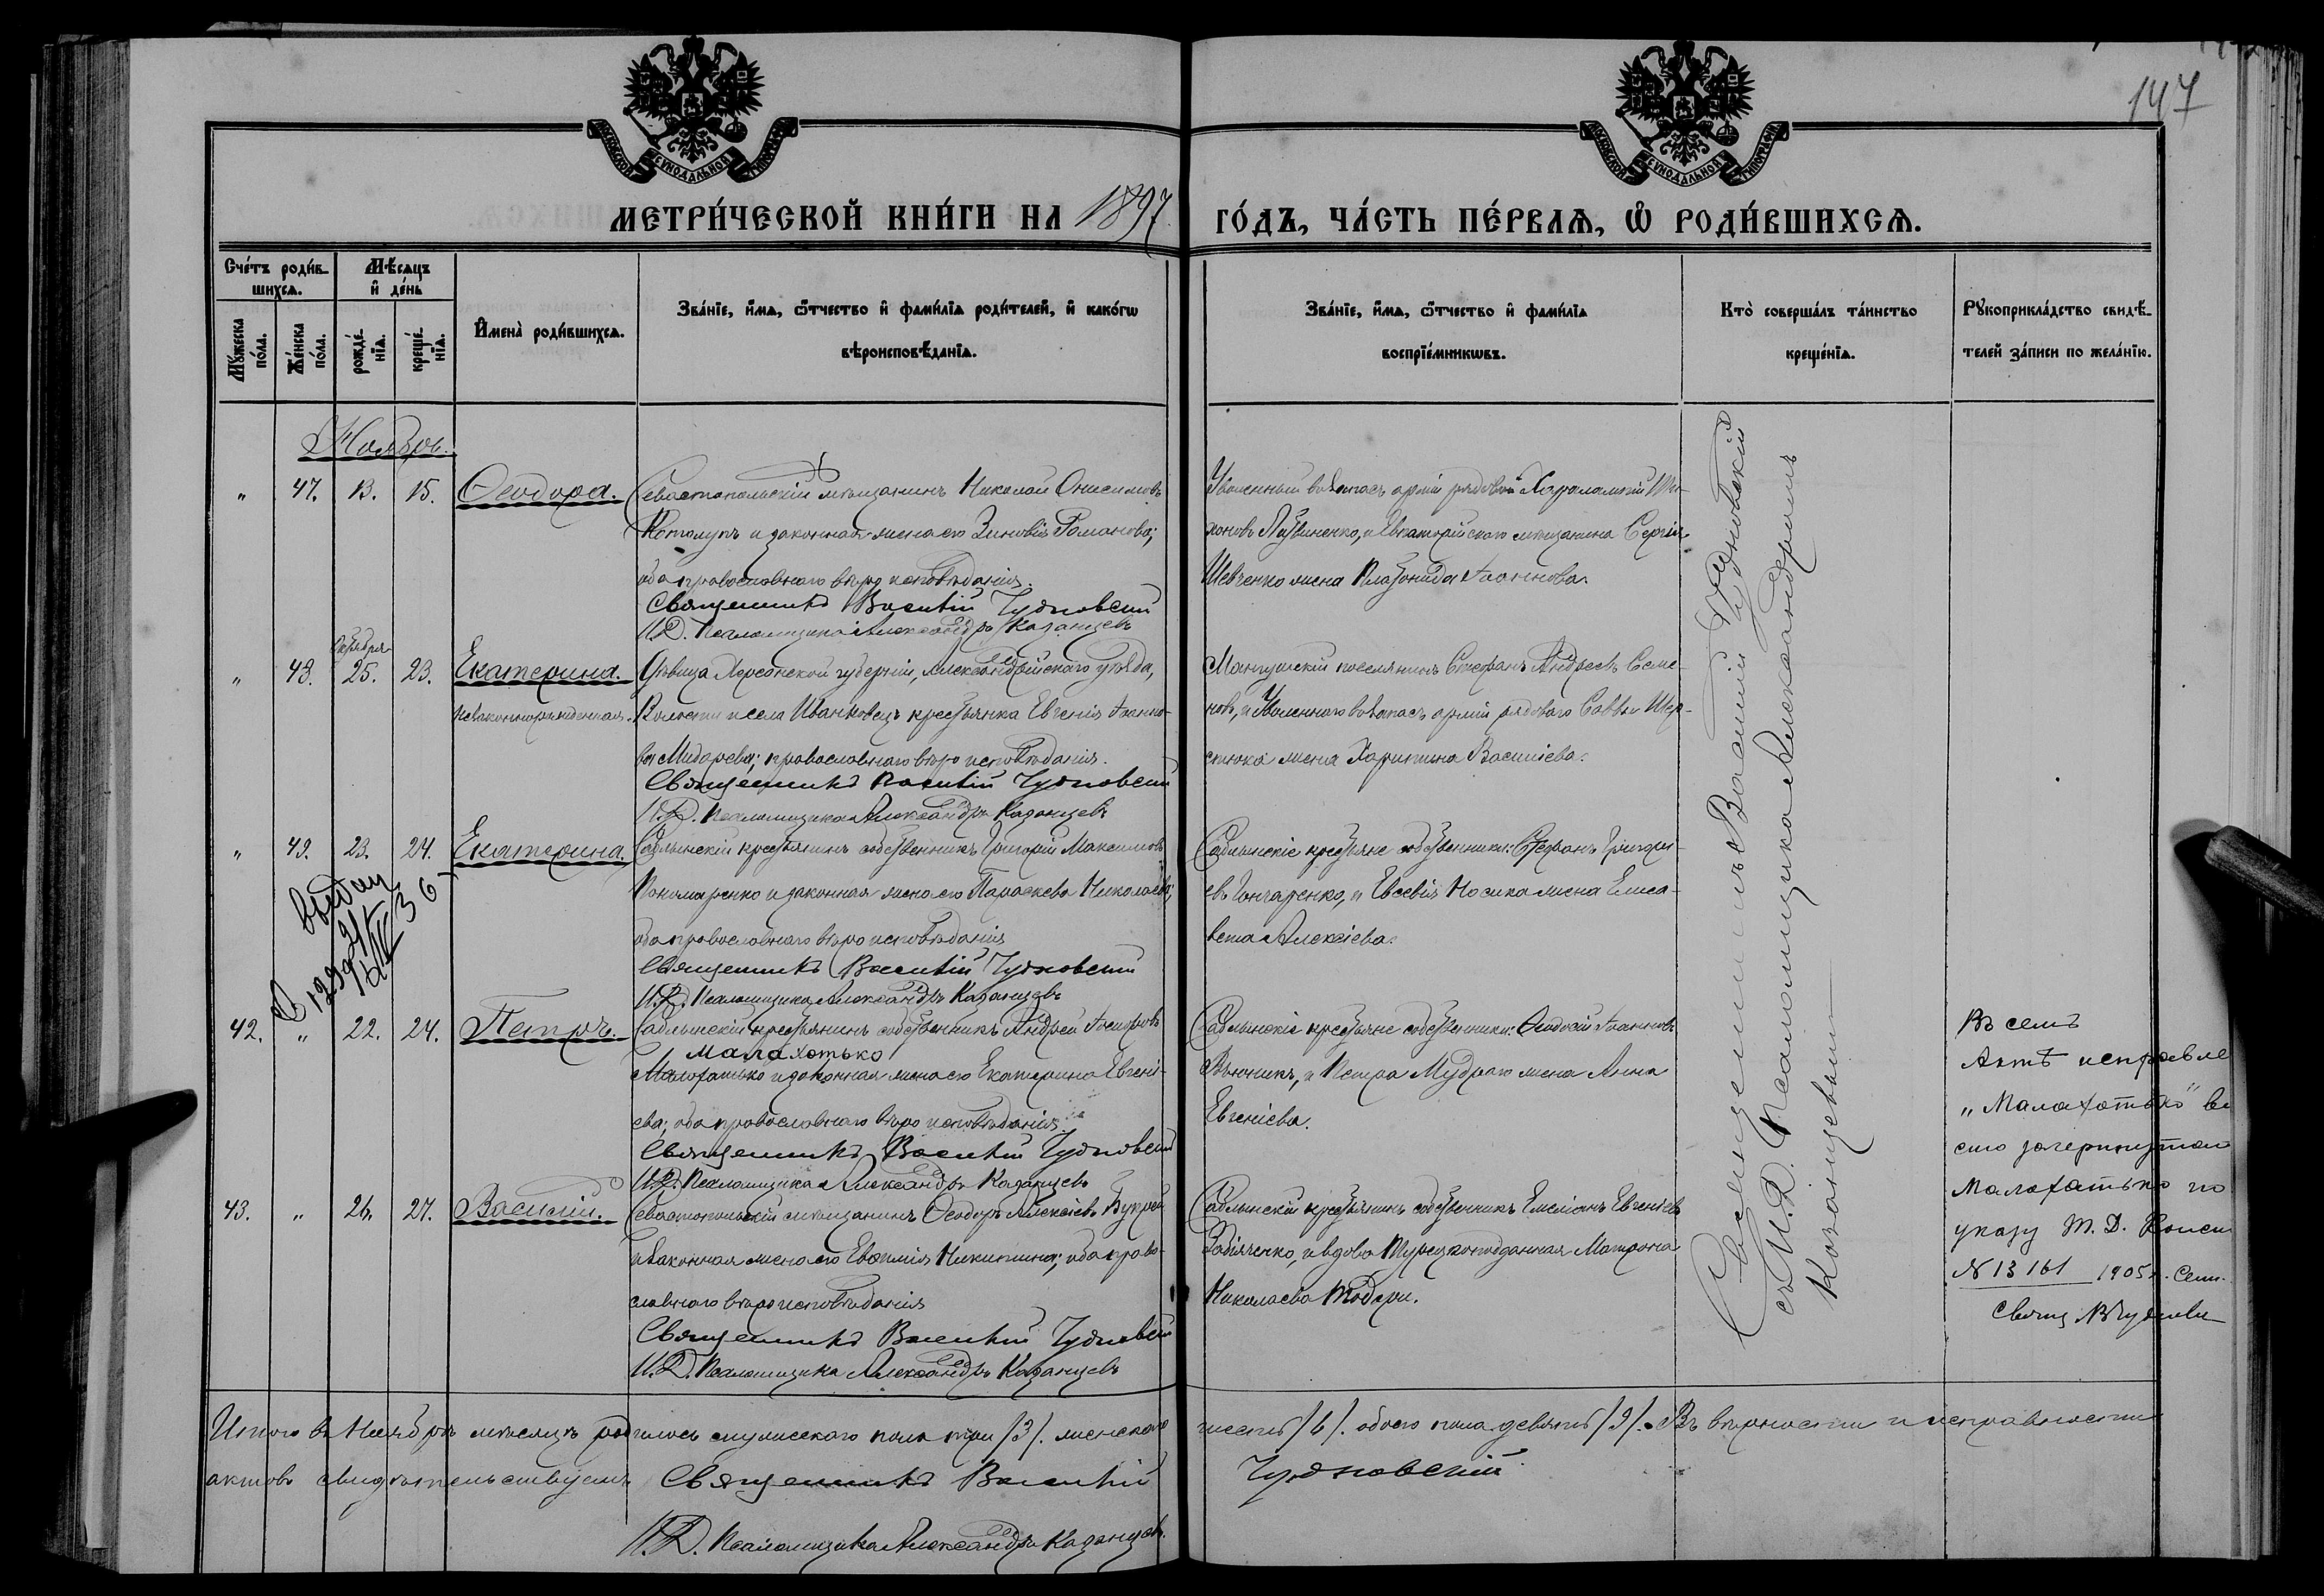 147
МОСКОВСКОЙ СѴНОДАЛЬНОЙ ТИПОГРАФІИ
МОСКОВСКОЙ СѴНОДАЛЬНОЙ ТИПОГРАФІИ
МЕТРИ́ЧЕСКОЙ КНИ́ГИ НА 1897 ГО́ДЪ, ЧА́СТЬ ПЕ́РВАѦ, Ѡ҆ РОДИ́ВШИХСѦ.
Сче́тъ роди́в-
шихсѧ.
Мѣ́сѧцъ
и҆ де́нь
Мꙋ́жеска по́ла.
Же́нска по́ла.
рожде́-
нїѧ.
креще́-
нїѧ.
И҆мена̀ роди́вшихсѧ.
Зва́нїе, и҆́мѧ, ѻ҆́тчество и҆ фами́лїѧ роди́телей, и҆ како́гѡ
вѣроисповѣ́данїѧ.
Зва́нїе, и҆́мѧ, ѻ҆́тчество и҆ фами́лїѧ
воспрїе́мникѡвъ.
Кто̀ соверша́лъ та́инство
креще́нїѧ.
Рꙋкоприкла́дство свидѣ́-
телей за́писи по жела́нїю.
Ноябрь.
" 47. 13. 15. Ѳеодора.
Севастопольскій мѣщанинъ Николай Онисимовъ
и законная жена его Зиновія Романова;
оба православнаго вѣроисповѣданія.
Священникъ Василій Чудновскій
И.Д. Псаломщика Александръ Казанцевъ
Уволенный въ запасъ арміи рядовой Харалампій
Литвиненко, и Евпаторійскаго мѣщанина Сергія
Шевченко жена Іоаннова.
" 48. Октября 25. 23. Екатерина.
незаконнорожденная.
Дѣвица Херсонской губерніи, Александрійскаго уѣзда,
Волости и села Иванковецъ крестьянка Евгенія Іоанно-
ва православнаго вѣроисповѣданія.
Священникъ Василій Чудновскій
И.Д. Псаломщика Александръ Казанцевъ
Мангушскій поселянинъ Стефанъ Андреевъ Семе-
новъ, и Уволеннаго въ запасъ арміи рядоваго Саввы Шер-
стюка жена Харитина Василіева.
" 49. 23. 24. Екатерина.
Саблынскій крестьянинъ собственникъ Григорій Максимовъ
Пономаренко и законная жена его Параскева Николаева;
оба православнаго вѣроисповѣданія
Священникъ Василій Чудновскій
И.Д. Псаломщика Александръ Казанцевъ
Саблынскіе крестьяне собственники: Стефанъ Григорі-
евъ Гончаренко, и Евсевія Носика жена Елиса-
вета Алексіева.
42. " 22. 24. Петръ.
Саблынскій крестьянинъ собственникъ Андрей Іосифовъ
Малахотько
Малофатько и законная жена его Екатерина Евгені-
ева; оба православнаго вѣроисповѣданія.
Священникъ Василій Чудновскій
И.Д. Псаломщика Александръ Казанцевъ
Саблынскіе крестьяне собственники: Ѳеодосій Іоанновъ
Вьюникъ, и Петра Мудраго жена Анна
Евгеніева.
Въ семъ
Актѣ исправле
"Малахотько" вм
сто зачеркнутаго
Малофатько по
указу Т. Д. Конси
№ 13161 1905 г. Сент.
43. " 26. 27. Василій.
Севастопольскій мѣщанинъ Ѳеодоръ Алексіевъ
и законная жена его Евѳимія Никитина; оба право-
славнаго вѣроисповѣданія
Священникъ Василій Чудновскій
И.Д. Псаломщика Александръ Казанцевъ
Саблынскій крестьянинъ собственникъ Емеліанъ Евгеніевъ
и вдова Турецкоподданная Матрона
Николаева Тодери.
Священникъ Василій Чудновскій
съ И.Д. Псаломщика Александромъ
Казанцевымъ
Итого въ Ноябрѣ мѣсяцѣ родилось мужескаго пола три /3/. женскаго шесть /6/. обоего пола девять /9/. Въ вѣрности и исправности
актовъ свидѣтельствуемъ Священникъ Василій Чудновскій
И.Д. Псаломщика Александръ Казанцевъ.